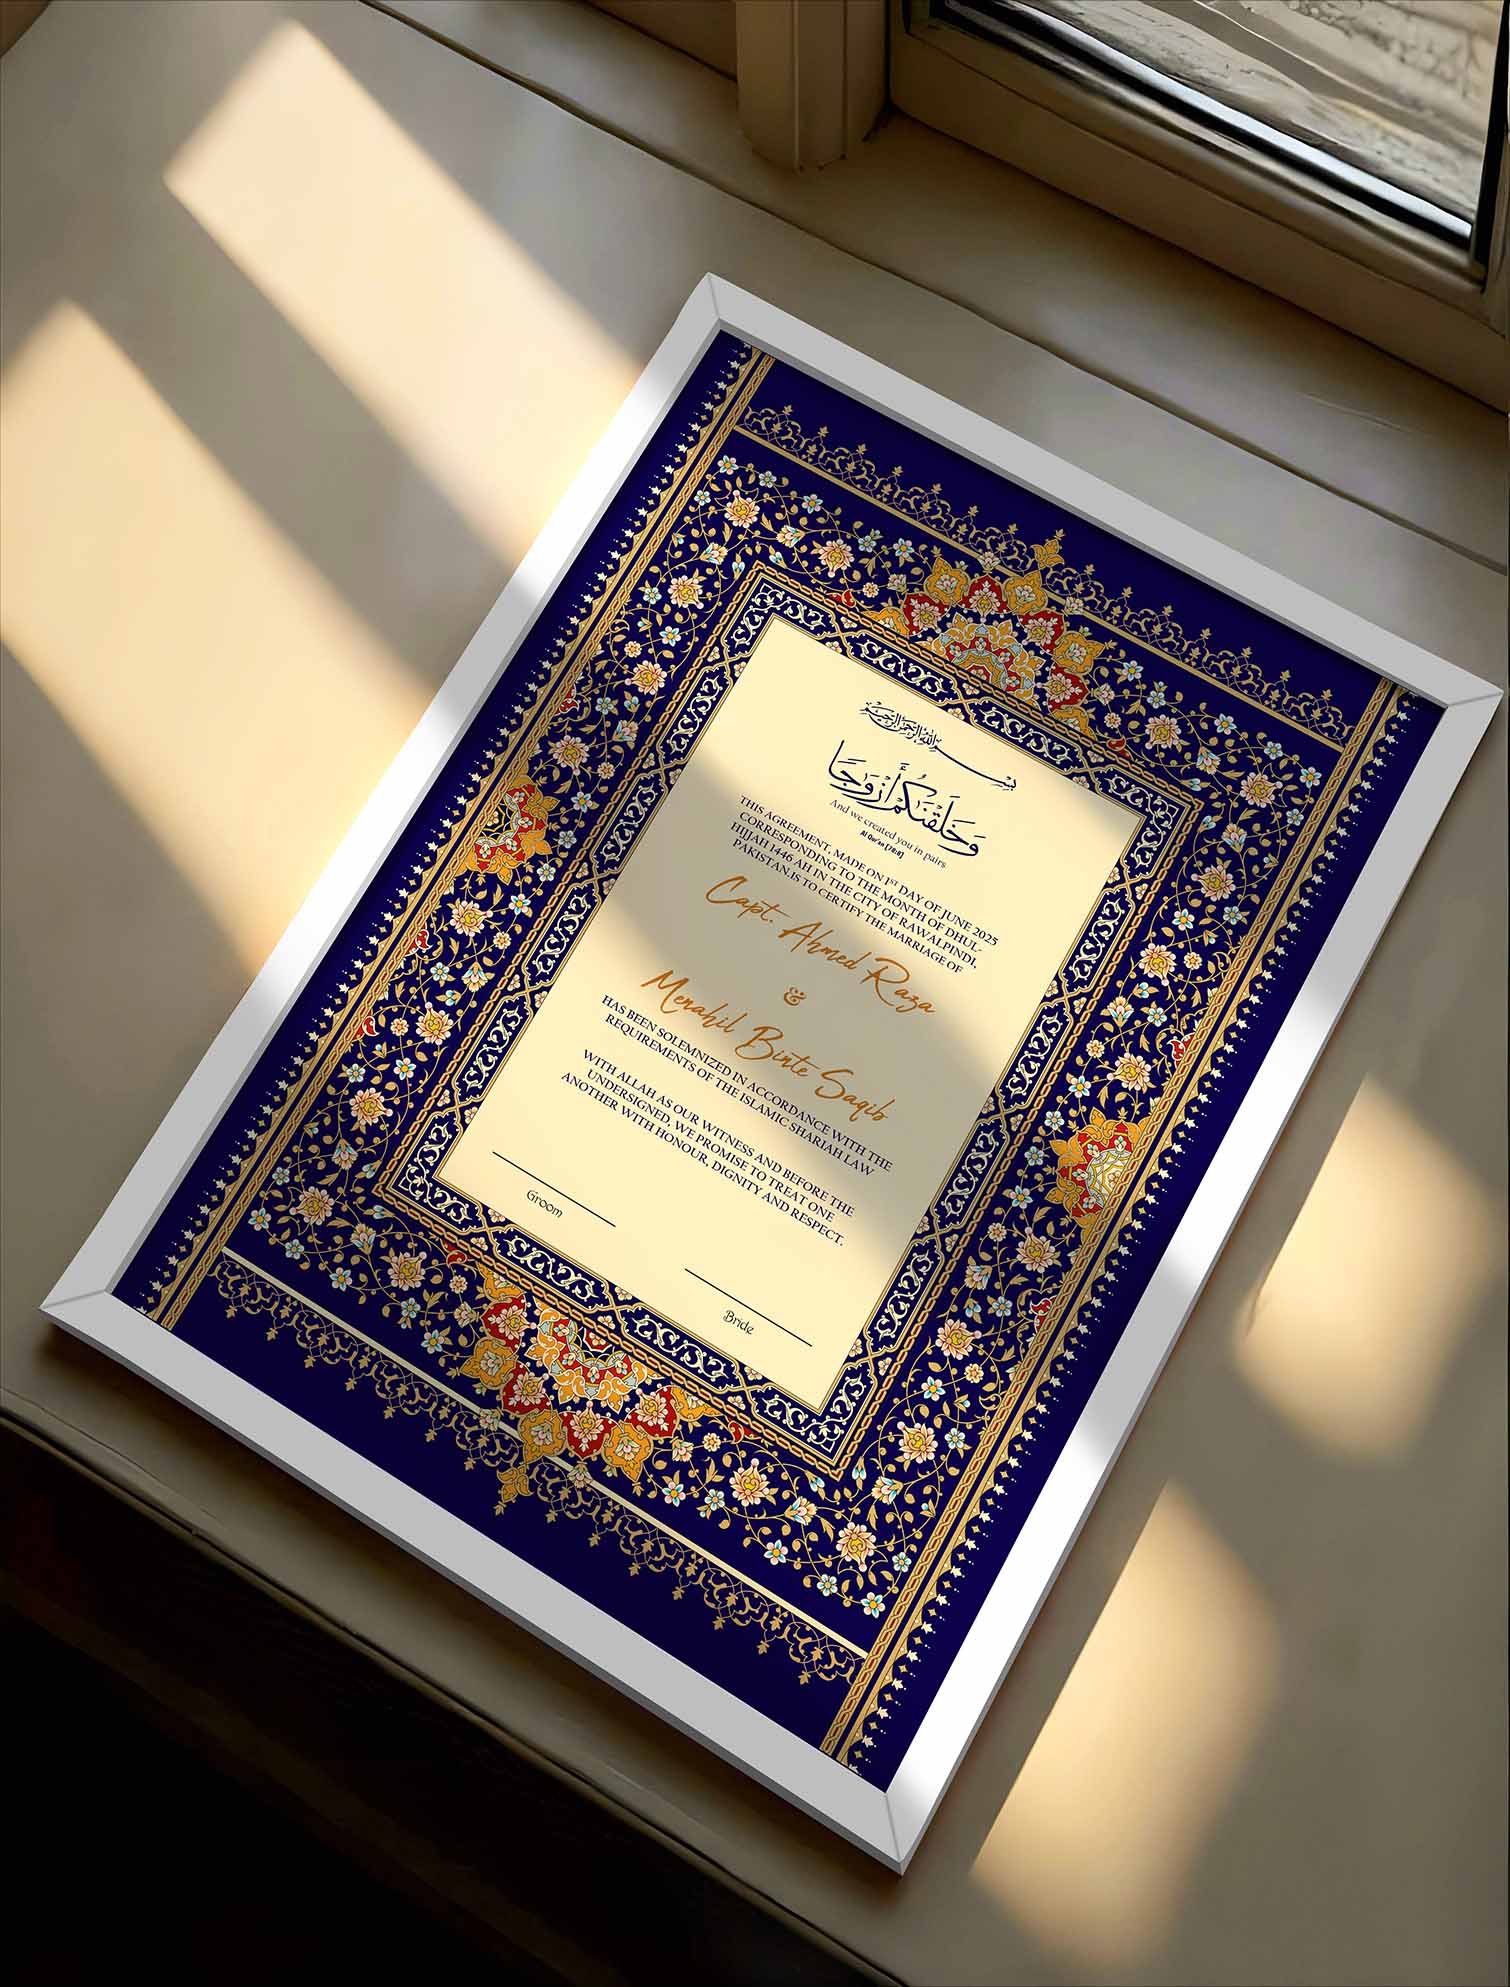 بسم الله الرحمن الرحيم
وَخَلَقْنَٰكُمْ أَزْوَٰجًا
And we created you in pairs
Al Qur'an [78:8]
THIS AGREEMENT, MADE ON 1ST DAY OF JUNE 2025
CORRESPONDING TO THE MONTH OF DHUL-
HIJJAH 1446 AH IN THE CITY OF RAWALPINDI,
PAKISTAN.IS TO CERTIFY THE MARRIAGE OF
Capt. Ahmed Raza
&
Merahil Binte Saqib
HAS BEEN SOLEMNIZED IN ACCORDANCE WITH THE
REQUIREMENTS OF THE ISLAMIC SHARIAH LAW
WITH ALLAH AS OUR WITNESS AND BEFORE THE
UNDERSIGNED, WE PROMISE TO TREAT ONE
ANOTHER WITH HONOUR, DIGNITY AND RESPECT.
Groom
Bride